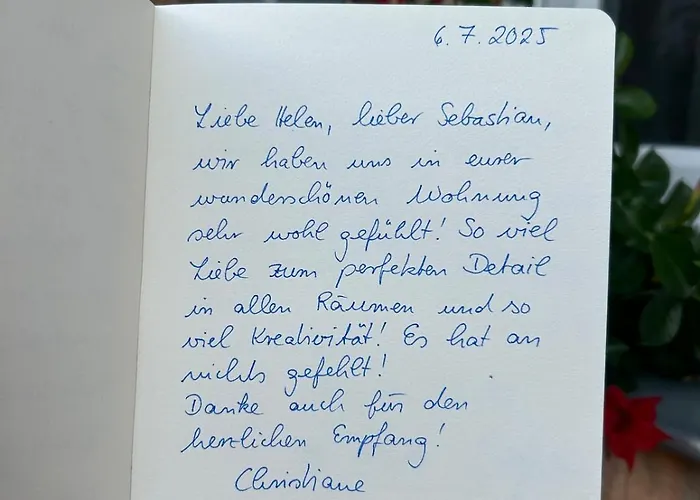 6.7.2025
Liebe Helen, lieber Sebastian,
wir haben uns in eurer
wunderschönen Wohnung
sehr wohl gefühlt! So viel
Liebe zum perfekten Detail
in allen Räumen und so
viel Kreativität! Es hat an
nichts gefehlt!
Danke auch für den
herzlichen Empfang!
Christiane